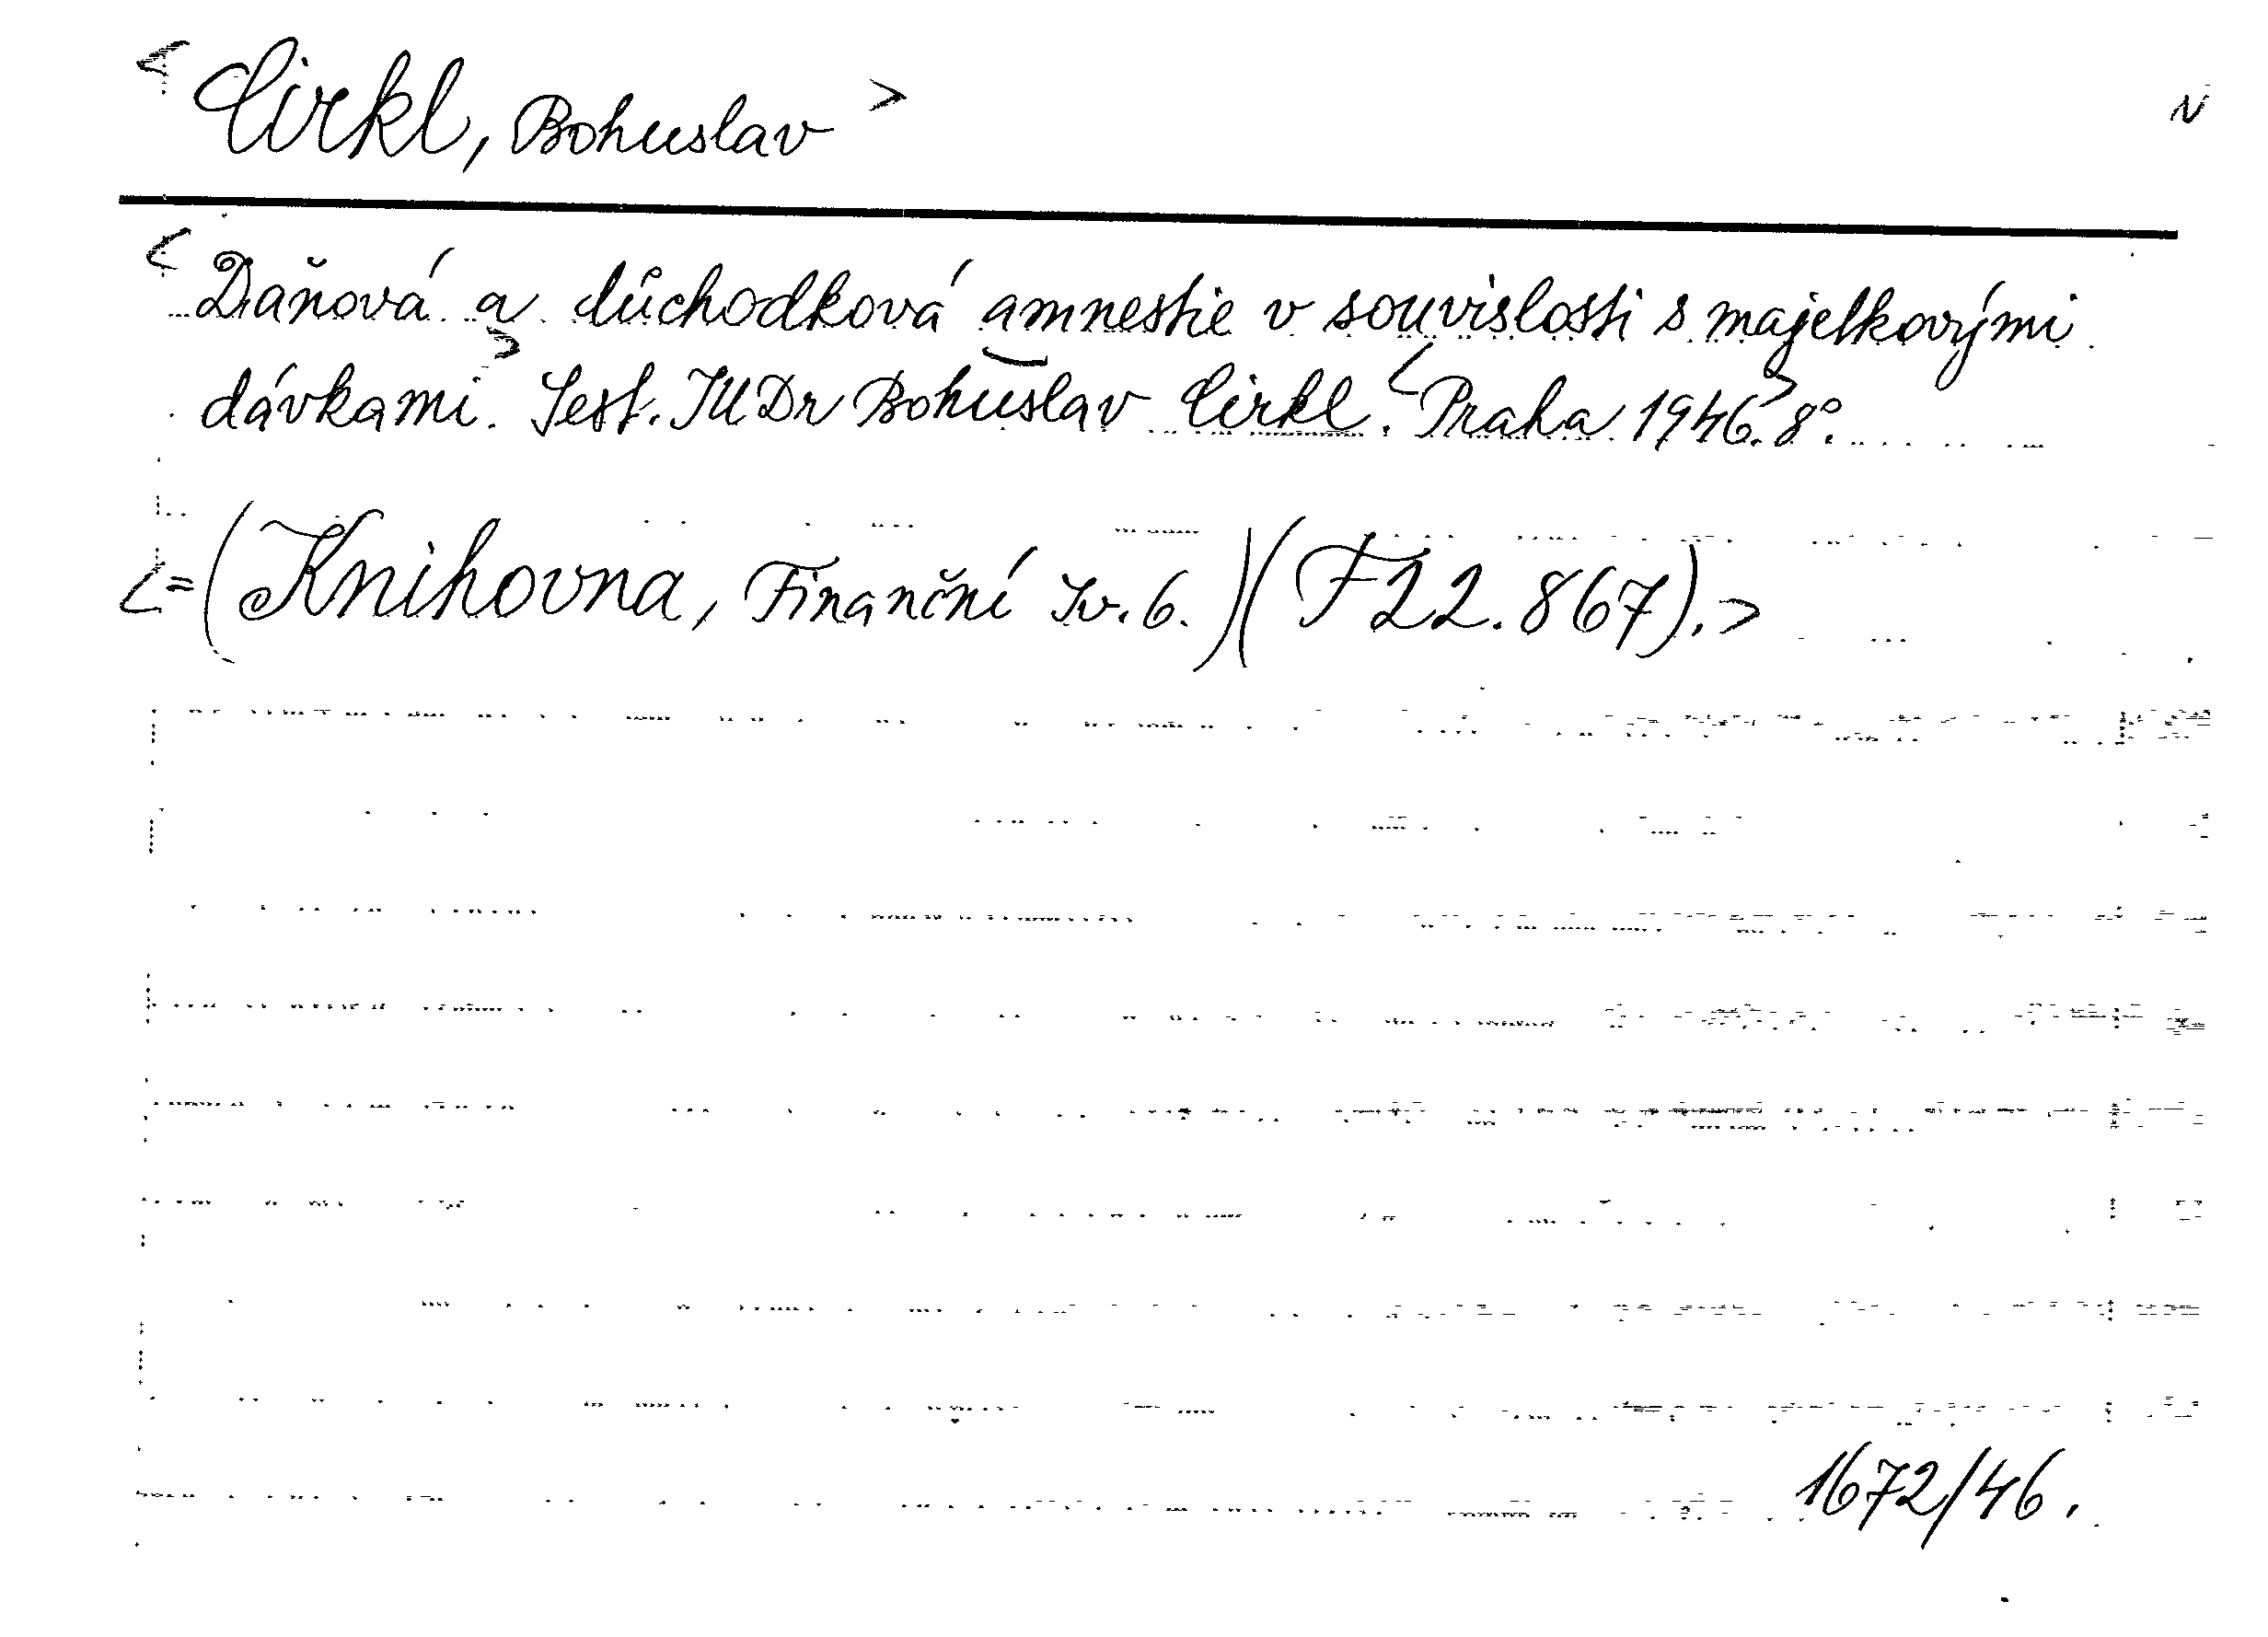 < Cirkl, Bohuslav >
N
< Daňová a důchodková amnestie v souvislosti s majetkovými
dávkami. > Sest. JUDr Bohuslav Cirkl. < Praha 1946. > 8°.
< = (Knihovna, Finanční Sv. 6.) (F 22.867). >
1672/46.